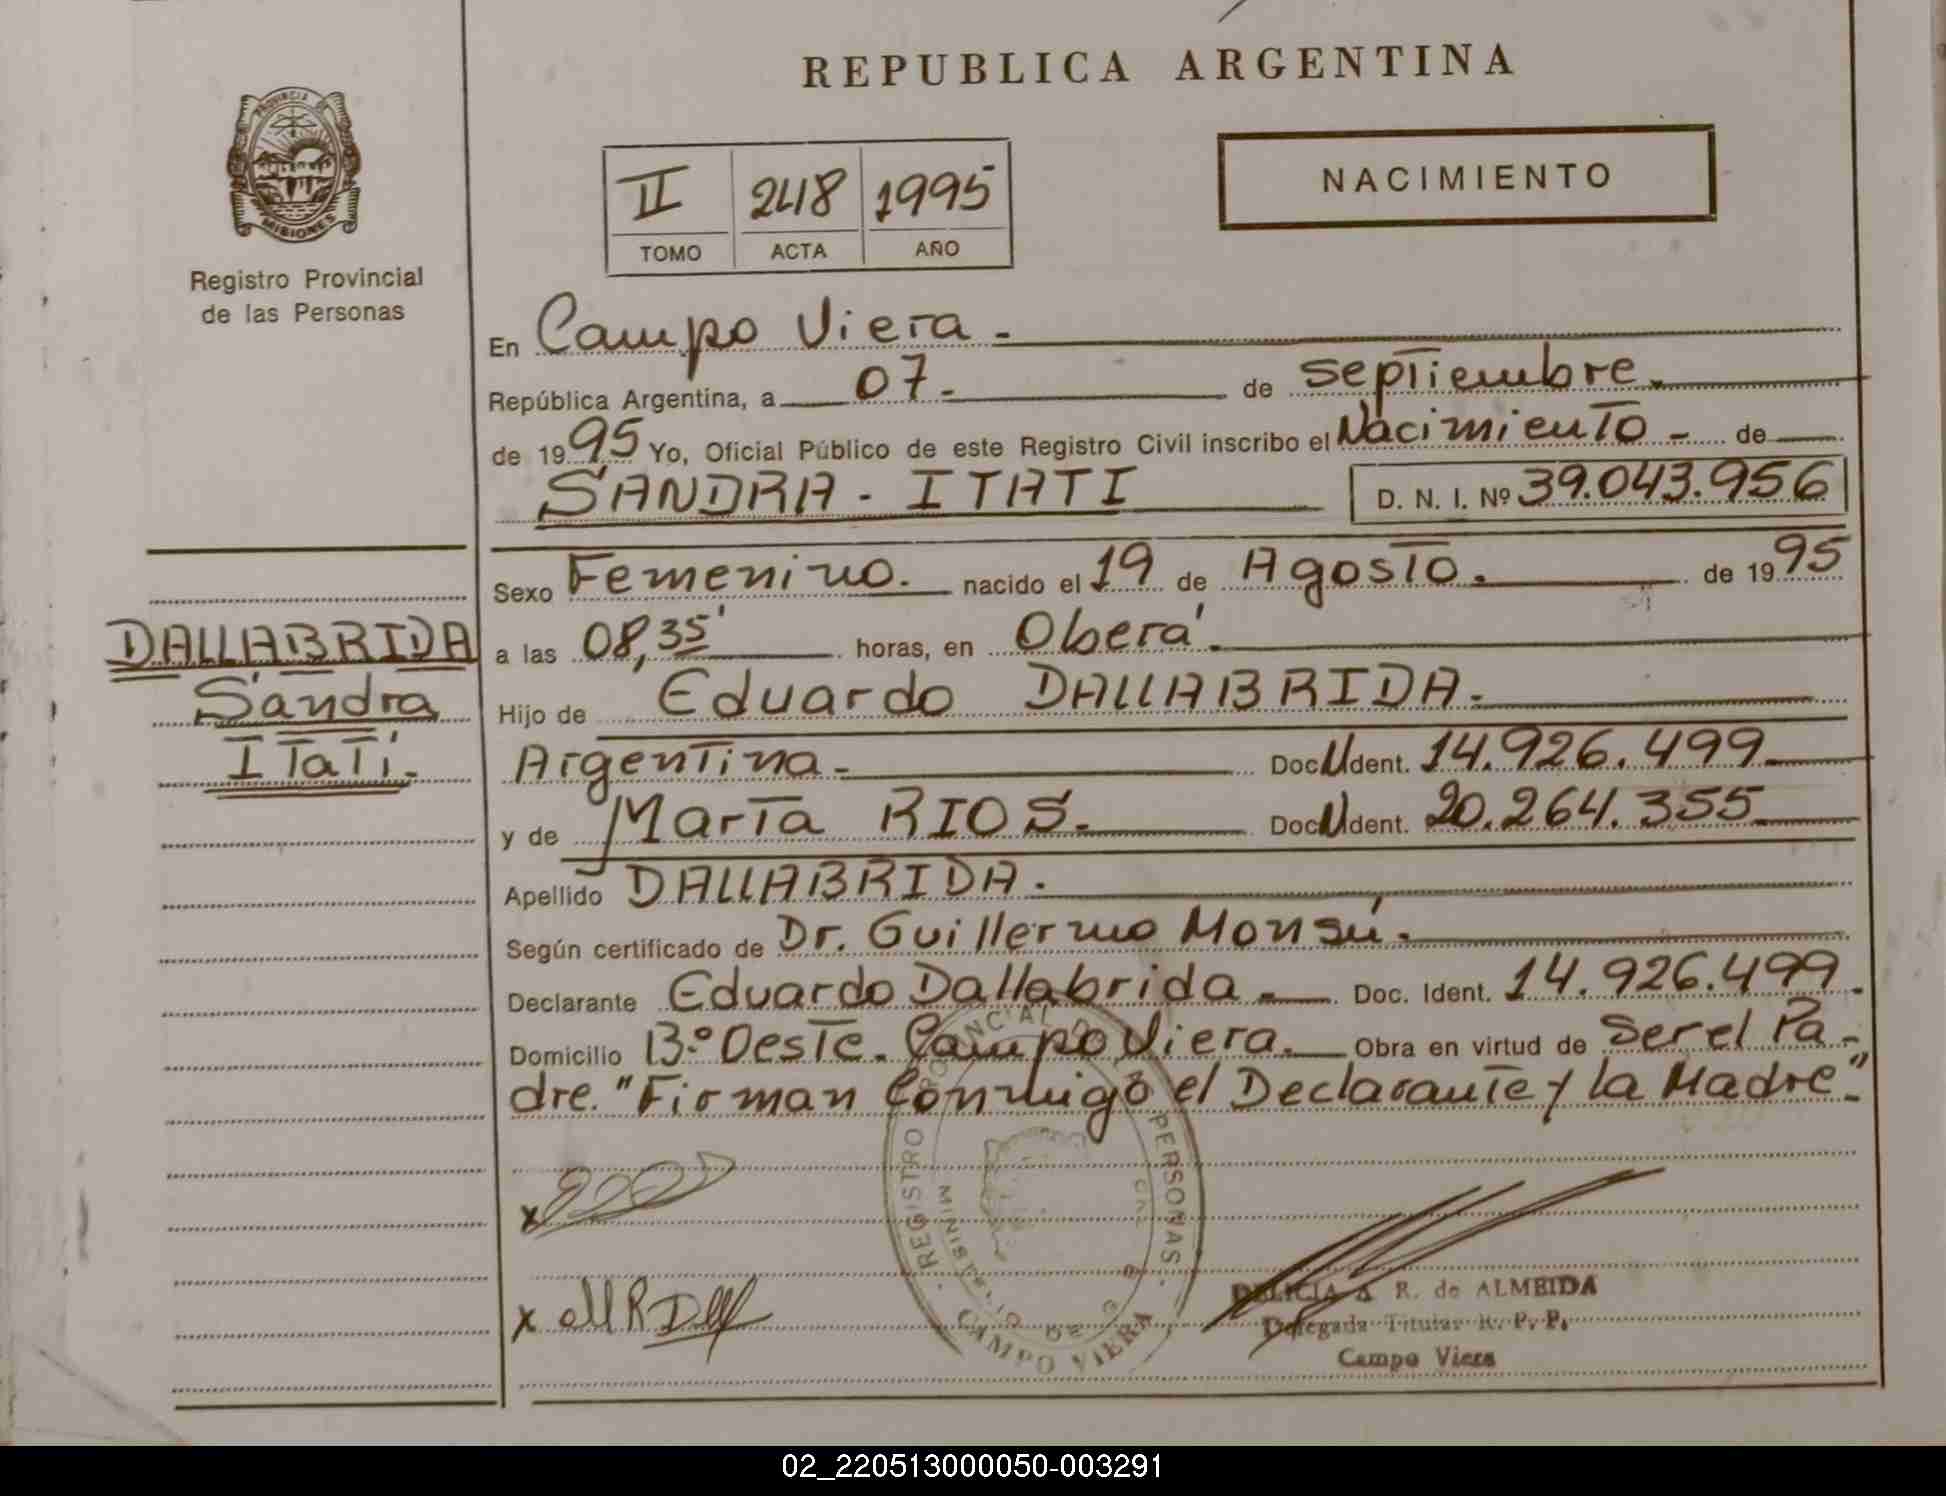 REPUBLICA ARGENTINA
PROVINCIA DE
MISIONES
Registro Provincial
de las Personas
II 248 1995
TOMO ACTA AÑO
NACIMIENTO
En Campo Viera.-
República Argentina, a 07.- de septiembre.-
de 1995 Yo, Oficial Público de este Registro Civil inscribo el Nacimiento - de
SANDRA - ITATI D. N. I. Nº 39.043.956
Sexo Femenino. nacido el 19 de Agosto. de 1995
DALLABRIDA
Sandra
ITatí.
a las 08,35' horas, en Oberá.
Hijo de Eduardo DALLABRIDA.-
Argentina.- Doc. N. Ident. 14.926.499.
y de Marta RIOS.- Doc. N. Ident. 20.264.355.
Apellido DALLABRIDA.
Según certificado de Dr. Guillermo Monsú.
Declarante Eduardo Dallabrida.- Doc. Ident. 14.926.499.
Domicilio B.º Oeste. Campo Viera. Obra en virtud de Ser el Pa-
dre. "Firman Conmigo el Declarante y la Madre".
REGISTRO PROVINCIAL DE LAS PERSONAS
CAMPO VIERA
x
x
DELICIA A R. de ALMEIDA
Delegada Titular R. P. P.
Campo Viera
02_220513000050-003291